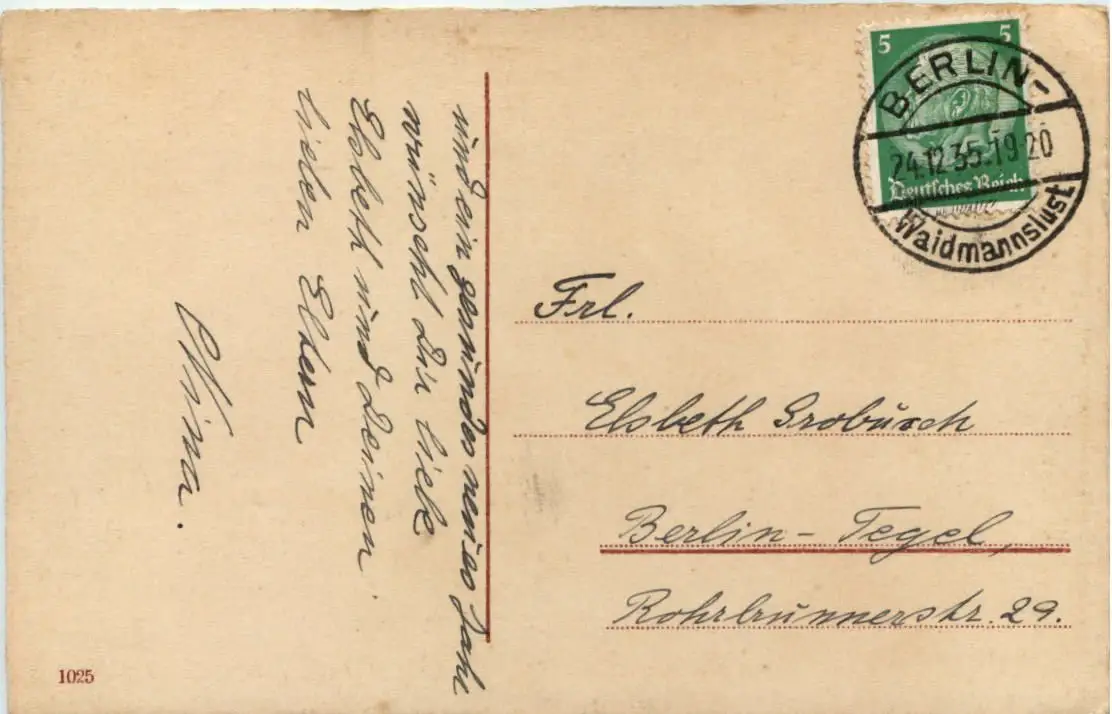 und ein gesundes neues Jahr
wünscht Dir liebe
Elsbeth und Deinen
lieben Eltern
Nina.
5 5
Deutsches Reich
BERLIN-
24.12.35.19-20
Waidmannslust
Frl.
Elsbeth Grobusch
Berlin-Tegel,
Rohrbrunnerstr. 29.
1025